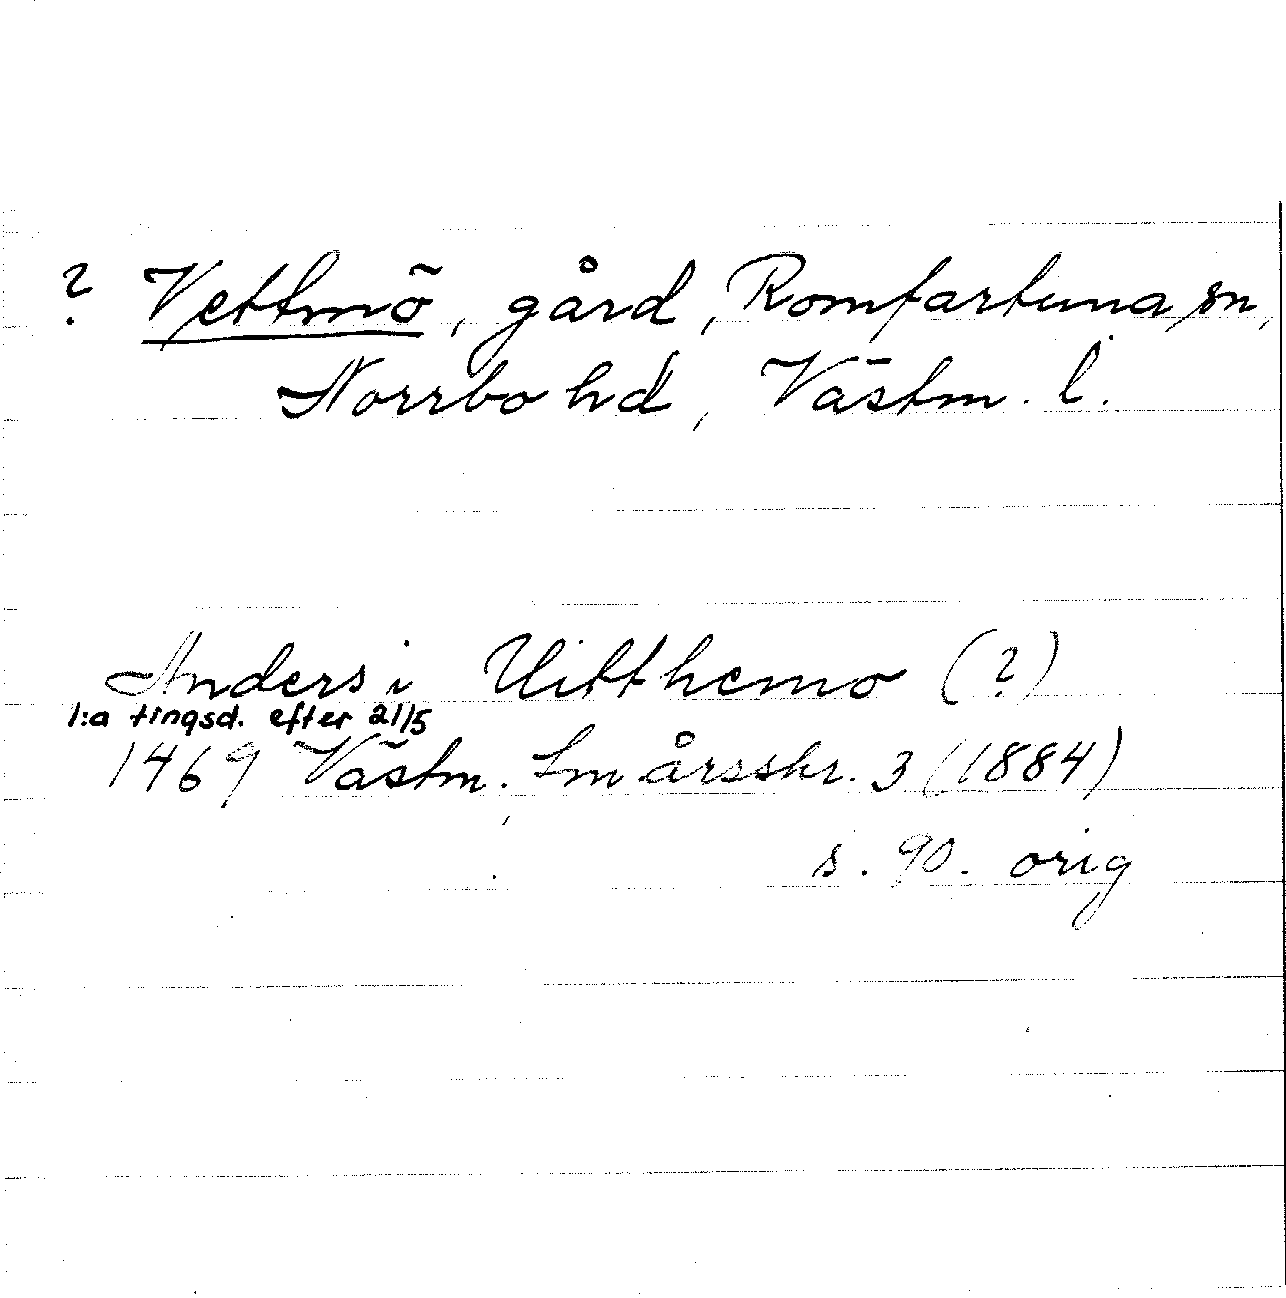 ? Vettmö, gård, Romfartuna sn,
Norrbo hd, Västm. l.
Anders i Uitthemo (?)
1:a tingsd. efter 21/5
1469 Västm. fm årsskr. 3 (1884)
s. 90. orig